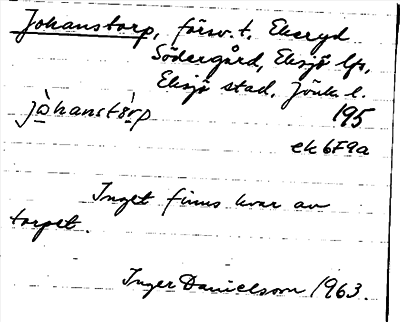 Johanstorp, försv. t. Ekeryd
Södergård, Eksjö lfs,
Eksjö stad, Jönk l.
jòhanstårp 195
ek 6F9a
Inget finns kvar av
torpet.
Inger Danielsson 1963.